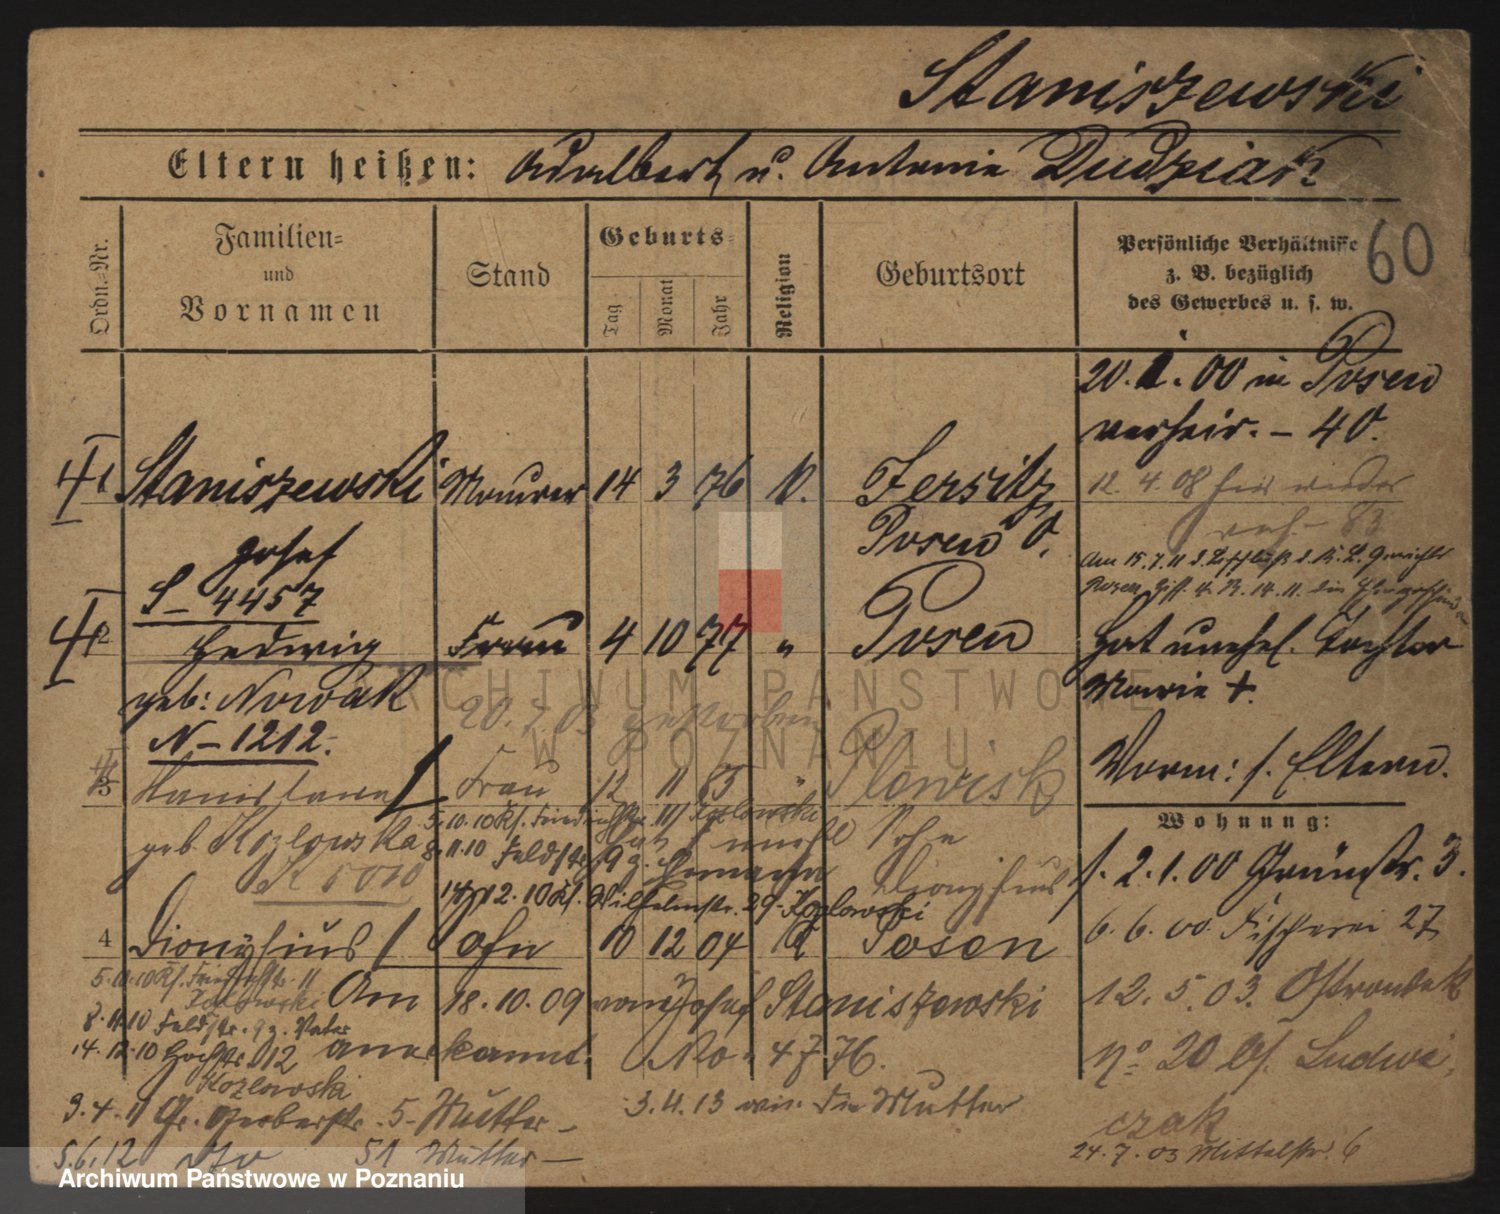 Staniszewski
Eltern heißen: Adalbert u. Antonie Dudziak
Ordn.-Nr.
Familien-
und
Vornamen
Stand
Geburts-
Tag
Monat
Jahr
Religion
Geburtsort
Persönliche Verhältnisse
z. B. bezüglich
des Gewerbes u. s. w.
60
20. 1. 00 in Posen
verheir. - 40.
1 Staniszewski Maurer 14 3 76 k. Jersitz
12. 4. 08 hier wieder
verh. - 83
Josef
Posen O.
S - 4457
Am 15.7.11 d. Beschluß d. K. L. Gerichts
Posen
2 Hedwig Frau 4 10 77 " Posen
Hat unehel. Tochter
Marie +.
geb: Nowak
20. 7. 03 gestorben
N - 1212.
Vorm: s. Eltern.
3 Stanislawa Frau 12 11 85 " Plewisk
Wohnung:
geb. Kozlowska
5.10.10 Kl. 11 Kozlowski
8.11.10 Feldstr. 9 z.
hat unehel Sohn
Dionysius
14.12.10 Kl. Wilhelmstr. 29 - Kozlowski
2. 1. 00 Grünstr. 3.
6. 6. 00 Fischerei 27
4 Dionysius Sohn 10 12 04 k Posen
5.10.10 Kl. 11
Kozlowski
Am 18. 10. 09 vom Josef Staniszewski
12. 5. 03. Ostrowek
8.11.10 Feldstr. 9 z. Vater
14.12.10 Hochstr. 12
Kozlowski
anerkannt. No. 4776.
No 20 bei Ludwi
czak
3.4.11 Gr. Gerberstr. 5 - Mutter -
3.4.13 wie die Mutter
24. 7. 03 Mittelstr. 6
5.6.12 51 Mutter -
ARCHIWUM PAŃSTWOWE
W POZNANIU
Archiwum Państwowe w Poznaniu